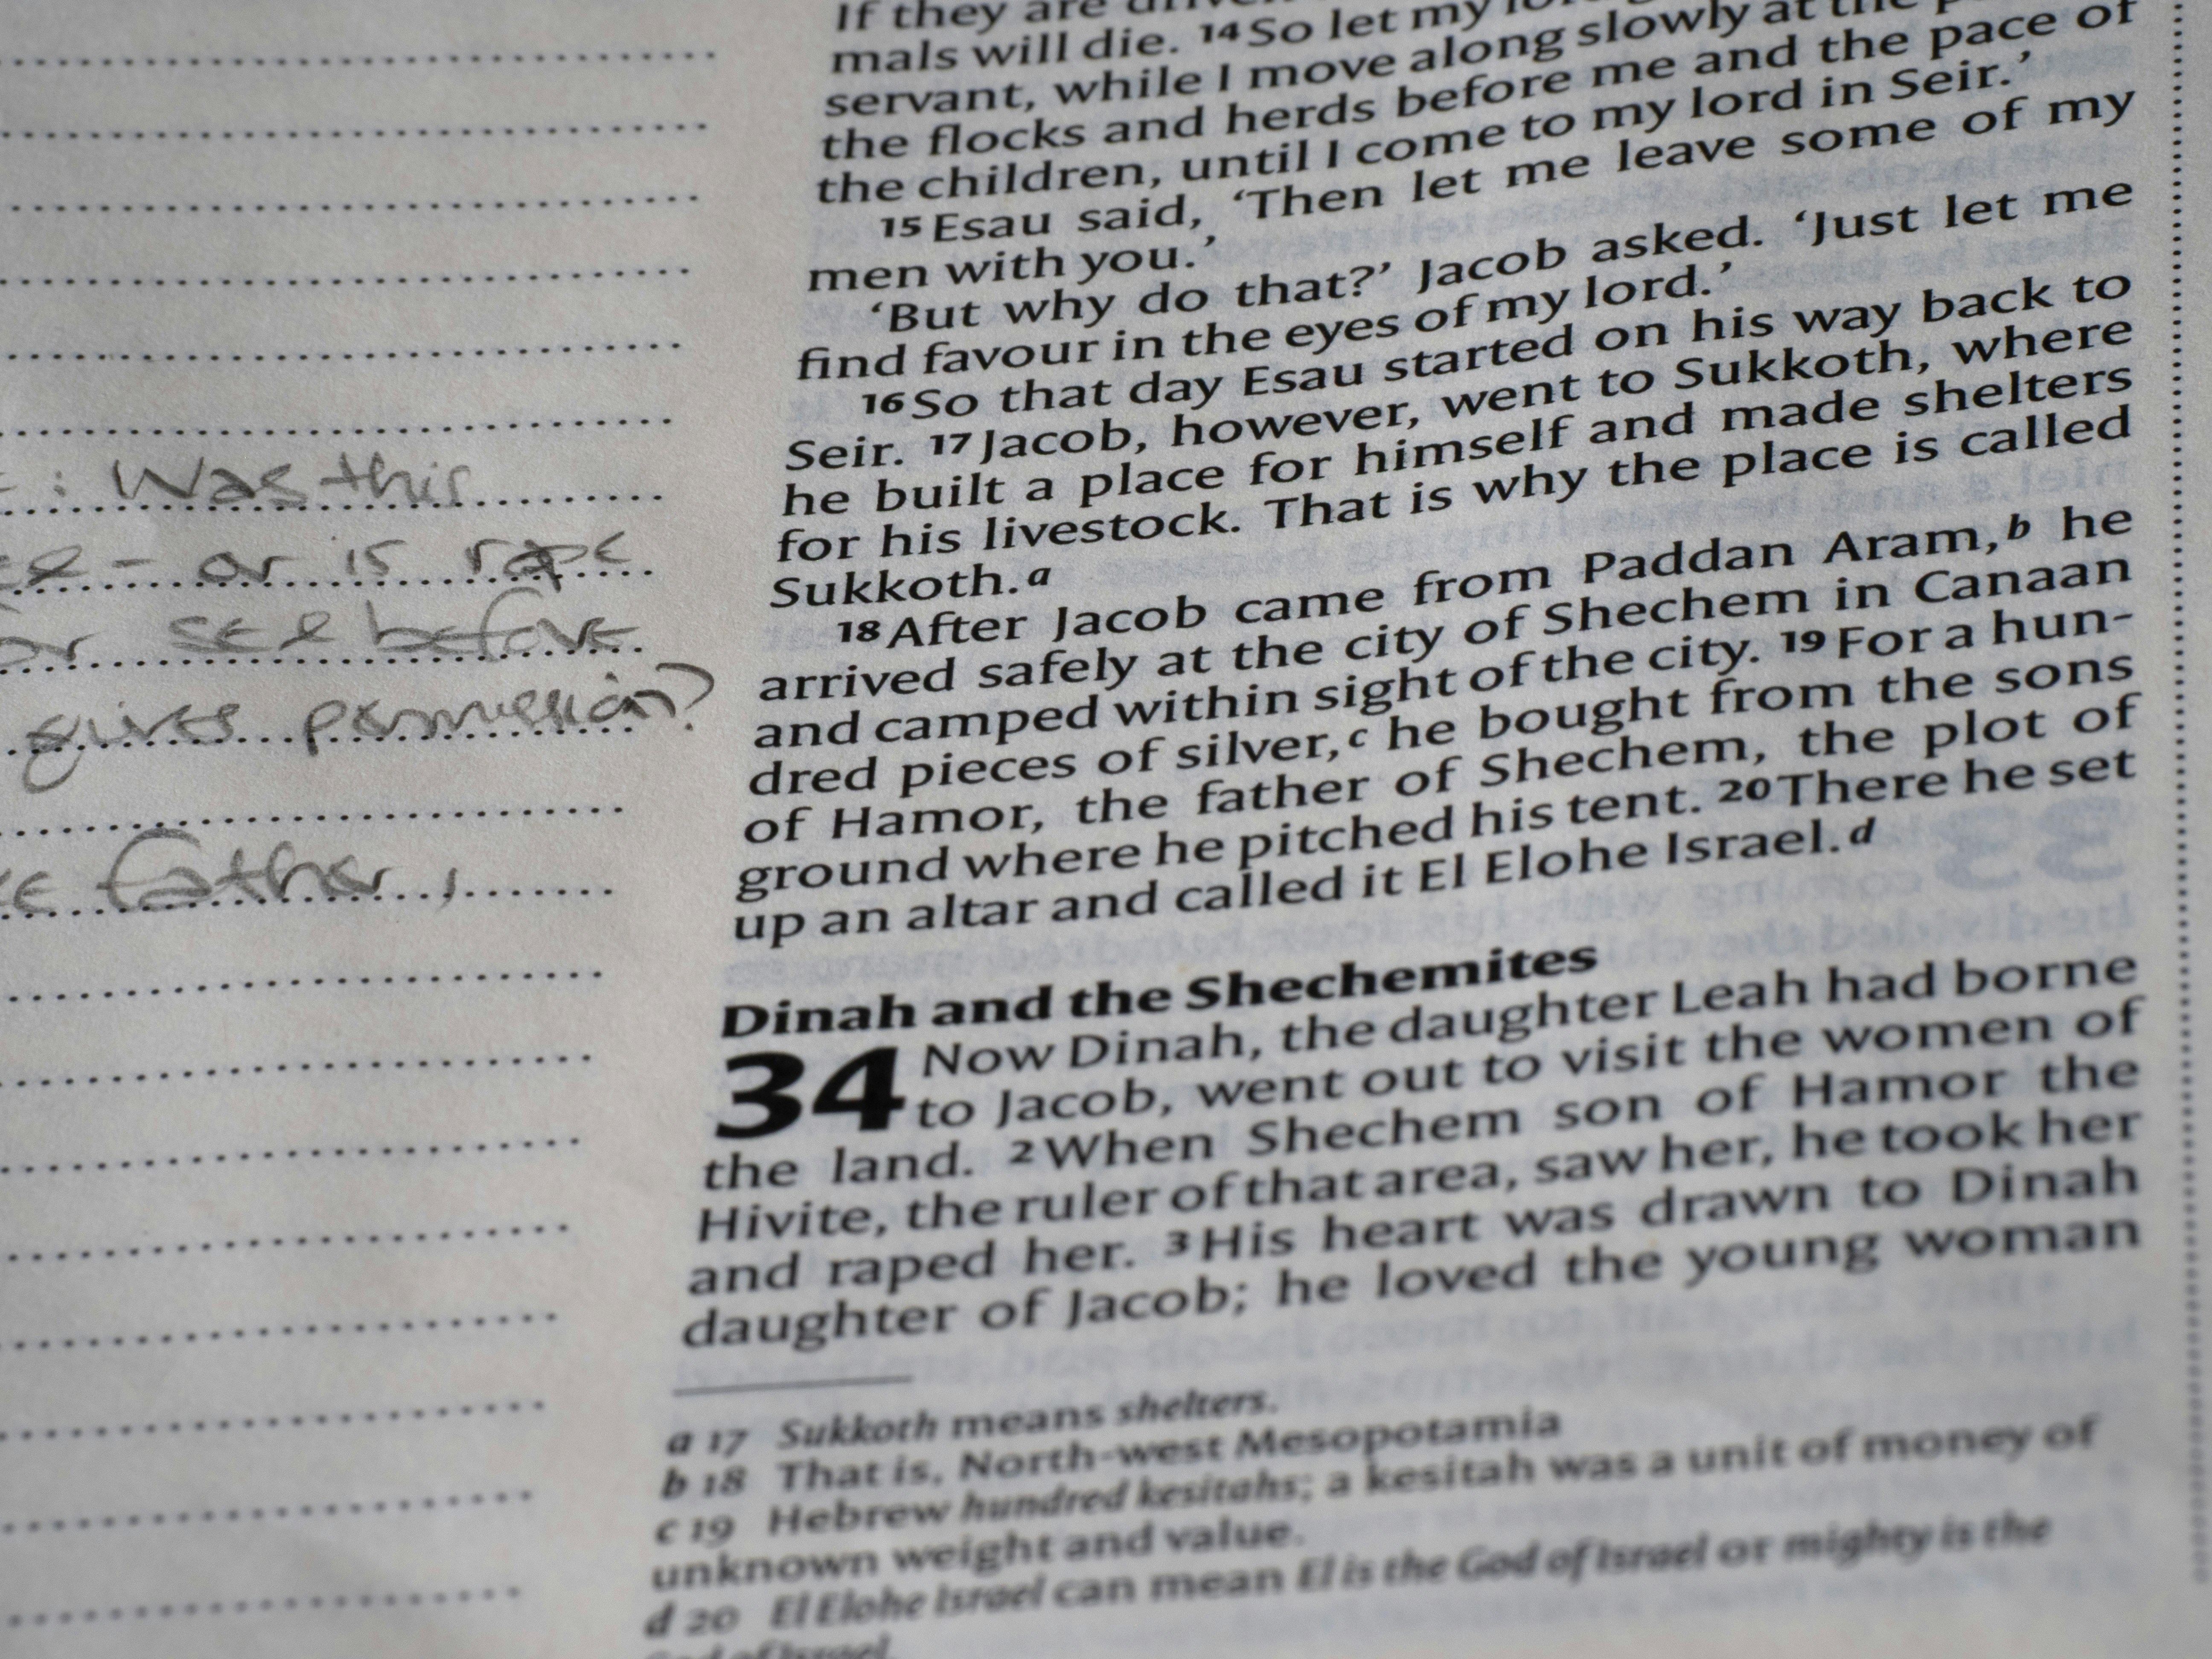 : Was this
- or is rape
or sel before
gives permission?
father,
If they are
mals will die. 14 So let my
servant, while I move along slowly at the
the flocks and herds before me and the pace of
the children, until I come to my lord in Seir.’
15 Esau said, ‘Then let me leave some of my
men with you.’
‘But why do that?’ Jacob asked. ‘Just let me
find favour in the eyes of my lord.’
16 So that day Esau started on his way back to
Seir. 17 Jacob, however, went to Sukkoth, where
he built a place for himself and made shelters
for his livestock. That is why the place is called
Sukkoth.a
18 After Jacob came from Paddan Aram,b he
arrived safely at the city of Shechem in Canaan
and camped within sight of the city. 19 For a hun-
dred pieces of silver,c he bought from the sons
of Hamor, the father of Shechem, the plot of
ground where he pitched his tent. 20 There he set
up an altar and called it El Elohe Israel.d
Dinah and the Shechemites
34 Now Dinah, the daughter Leah had borne
to Jacob, went out to visit the women of
the land. 2 When Shechem son of Hamor the
Hivite, the ruler of that area, saw her, he took her
and raped her. 3 His heart was drawn to Dinah
daughter of Jacob; he loved the young woman
a 17 Sukkoth means shelters.
b 18 That is, North-west Mesopotamia
c 19 Hebrew hundred kesitahs; a kesitah was a unit of money of
unknown weight and value.
d 20 El Elohe Israel can mean El is the God of Israel or mighty is the
God of Israel.